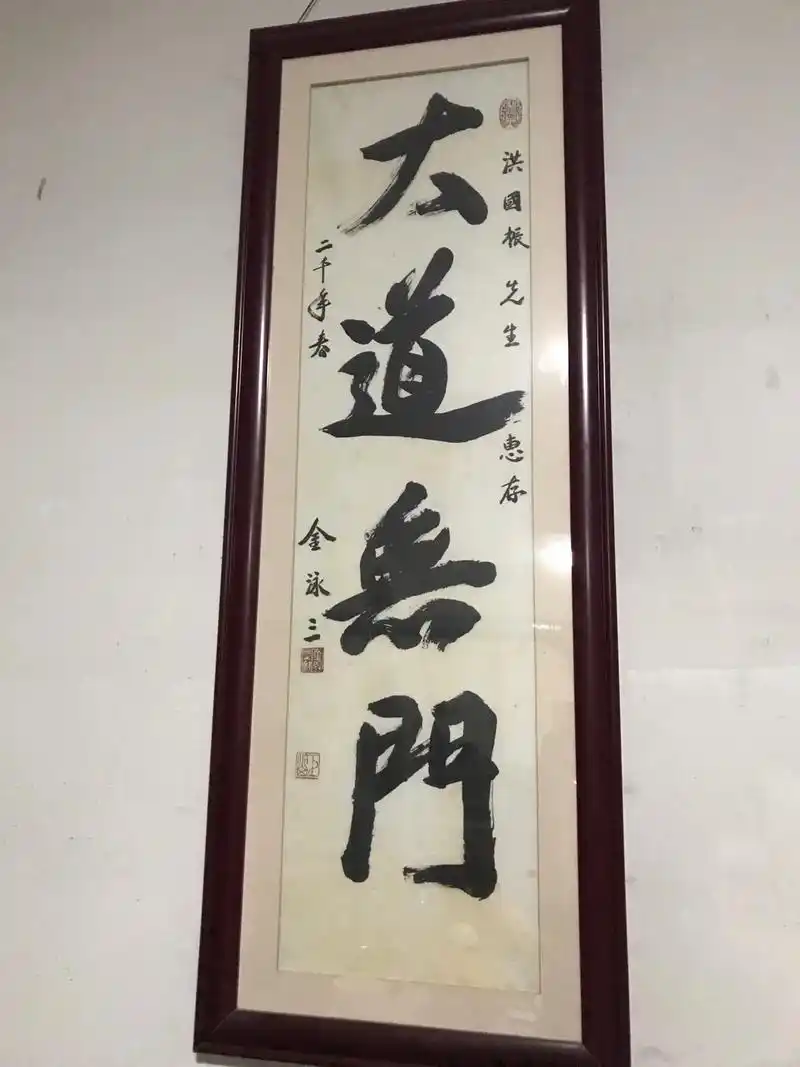 洪國振 先生 惠存
大道無門
二千年春 金泳三